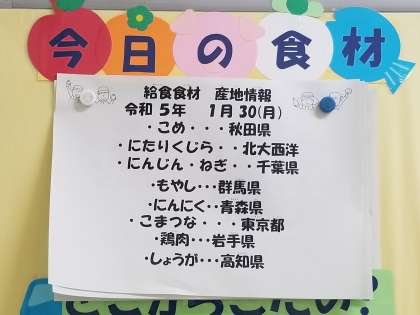 今日の食材
給食食材 産地情報
令和 5年 1月 30(月)
・こめ・・・秋田県
・にたりくじら・・北大西洋
・にんじん・ねぎ・・千葉県
・もやし・・・群馬県
・にんにく・・青森県
・こまつな・・・東京都
・鶏肉・・・岩手県
・しょうが・・・高知県